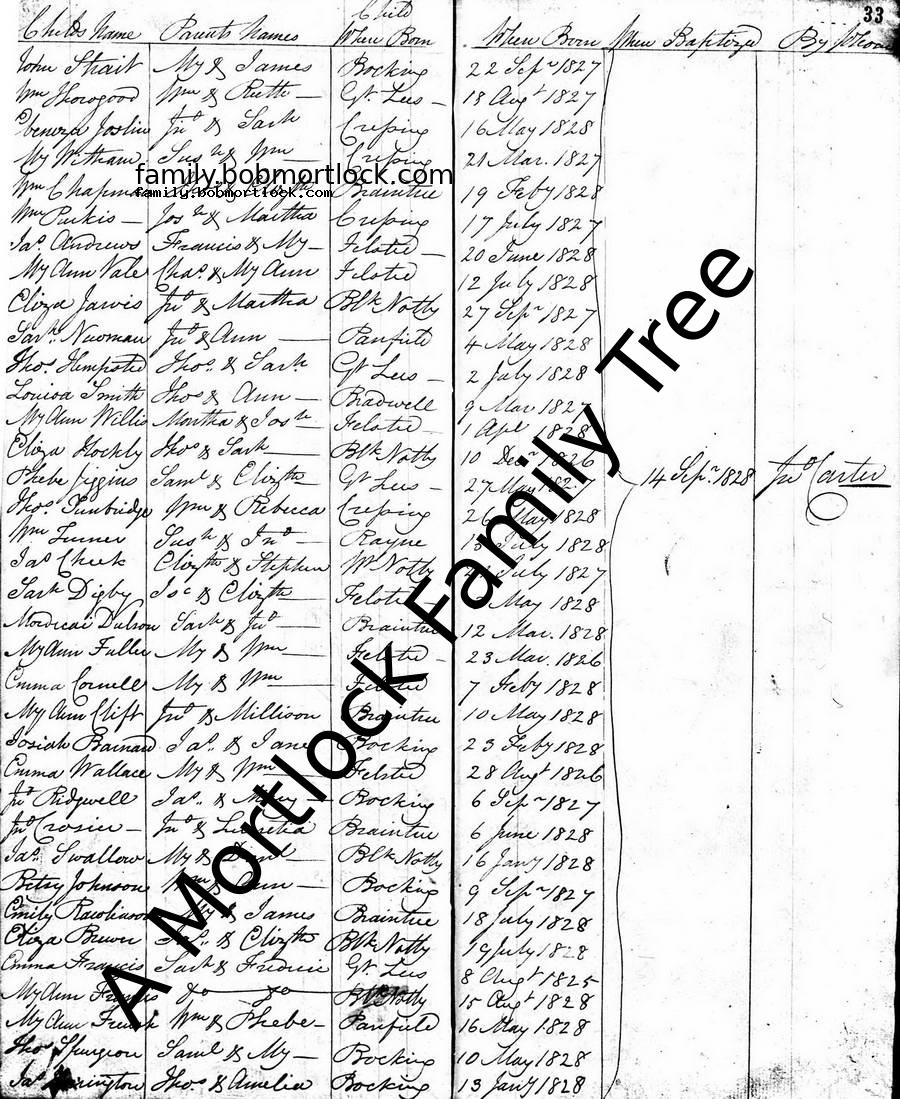 33
Child
Childs Name Parents Names When Born When Born When Baptized By Whom
John Strait My & James Bocking 22 Sepr 1827
Wm Thorogood Wm & Ruth Gt Lees 18 Augt 1827
Ebenezr Joslin Jno & Sarh Creping 16 May 1828
My Witham Sush & Wm Creping 21 Mar. 1827
family.bobmortlock.com
family.bobmortlock.com
Wm Chapman Braintree 19 Feby 1828
Wm Purkis Josh & Martha Creping 17 July 1827
Jas Andrews Francis & My Felsted 20 June 1828
My Ann Vale Chas & My Ann Felsted 12 July 1828
Eliza Jarvis Jno & Martha Blk Notly 27 Sepr 1827
Sarh Newman Jno & Ann Panfield 4 May 1828
Thos Hempsted Thos & Sarh Gt Lees 2 July 1828
Louisa Smith Thos & Ann Bradwell 9 Mar 1827
My Ann Willis Martha & Josh Felsted 1 Apl 1828
Eliza Hockly Thos & Sarh Blk Notly 10 Decr 1826
Phebe Jiggins Saml & Elizth Gt Lees 27 May 1827 14 Sepr 1828 Jno Carter
Thos Tunbridge Wm & Rebecca Creping 26 May 1828
Wm Turner Sush & Jno Rayne 13 July 1828
Jas Cheek Elizth & Stephen Wt Notly July 1827
Sarh Digby Isc & Elizth Felsted May 1828
Mordecai Dulson Sarh & Jno Braintree 12 Mar. 1828
My Ann Fuller My & Wm Felsted 23 Mar. 1826
Emma Cornell My & Wm Felsted 7 Feby 1828
My Ann Clift Jno & Millison Braintree 10 May 1828
Josiah Barnard Jas & Jane Bocking 23 Feby 1828
Emma Wallace My & Wm Felsted 28 Augt 1826
Jno Ridgwell Jas & Bocking 6 Sepr 1827
Jno Crosier Jno & Lucretia Braintree 6 June 1828
Jas Swallow My & Danl Blk Notly 16 Jany 1828
Betsy Johnson Wm & Ann Bocking 9 Sepr 1827
Emily Rawlinson & James Braintree 18 July 1828
Eliza Brewer & Elizth Blk Notly 19 July 1828
Emma Francis Sarh & Frederic Gt Lees 8 Augt 1825
My Ann Francis Do Do Notly 15 Augt 1828
My Ann French Wm & Phebe Panfield 16 May 1828
Thos Spurgeon Saml & My Bocking 10 May 1828
Jas Thos & Amelia Bocking 13 Jany 1828
A Mortlock Family Tree